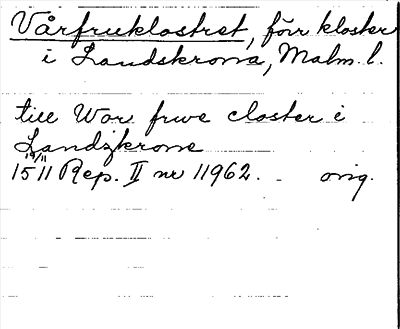 Vårfruklostret, förr kloster
i Landskrona, Malm. l.
till War frwe closter i
Landzkrone
19/11
1511 Rep. II nr 11962. - orig.